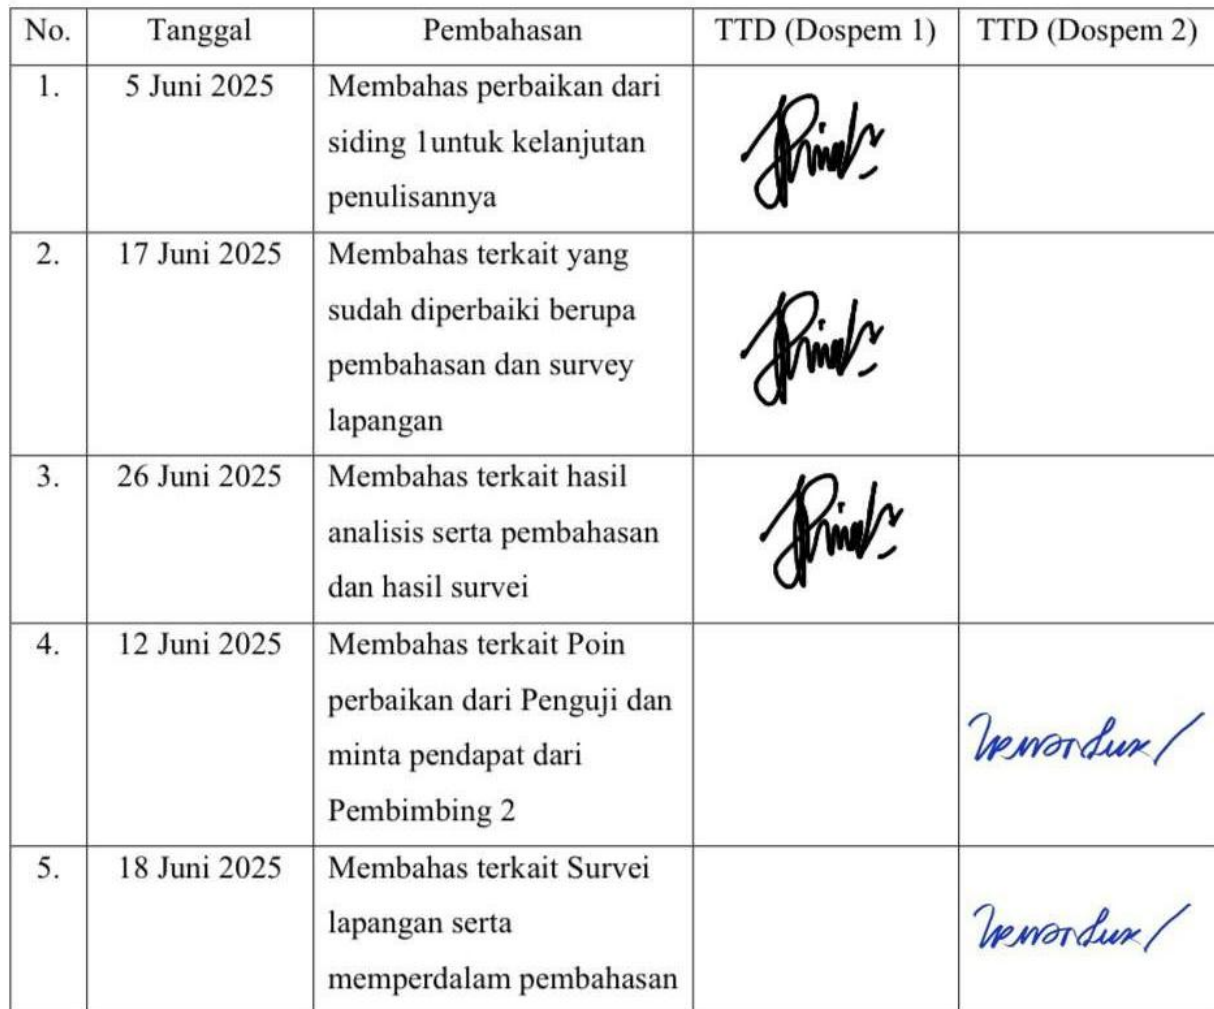 No. Tanggal Pembahasan TTD (Dospem 1) TTD (Dospem 2)
1. 5 Juni 2025 Membahas perbaikan dari
siding 1untuk kelanjutan
penulisannya
2. 17 Juni 2025 Membahas terkait yang
sudah diperbaiki berupa
pembahasan dan survey
lapangan
3. 26 Juni 2025 Membahas terkait hasil
analisis serta pembahasan
dan hasil survei
4. 12 Juni 2025 Membahas terkait Poin
perbaikan dari Penguji dan
minta pendapat dari
Pembimbing 2
5. 18 Juni 2025 Membahas terkait Survei
lapangan serta
memperdalam pembahasan